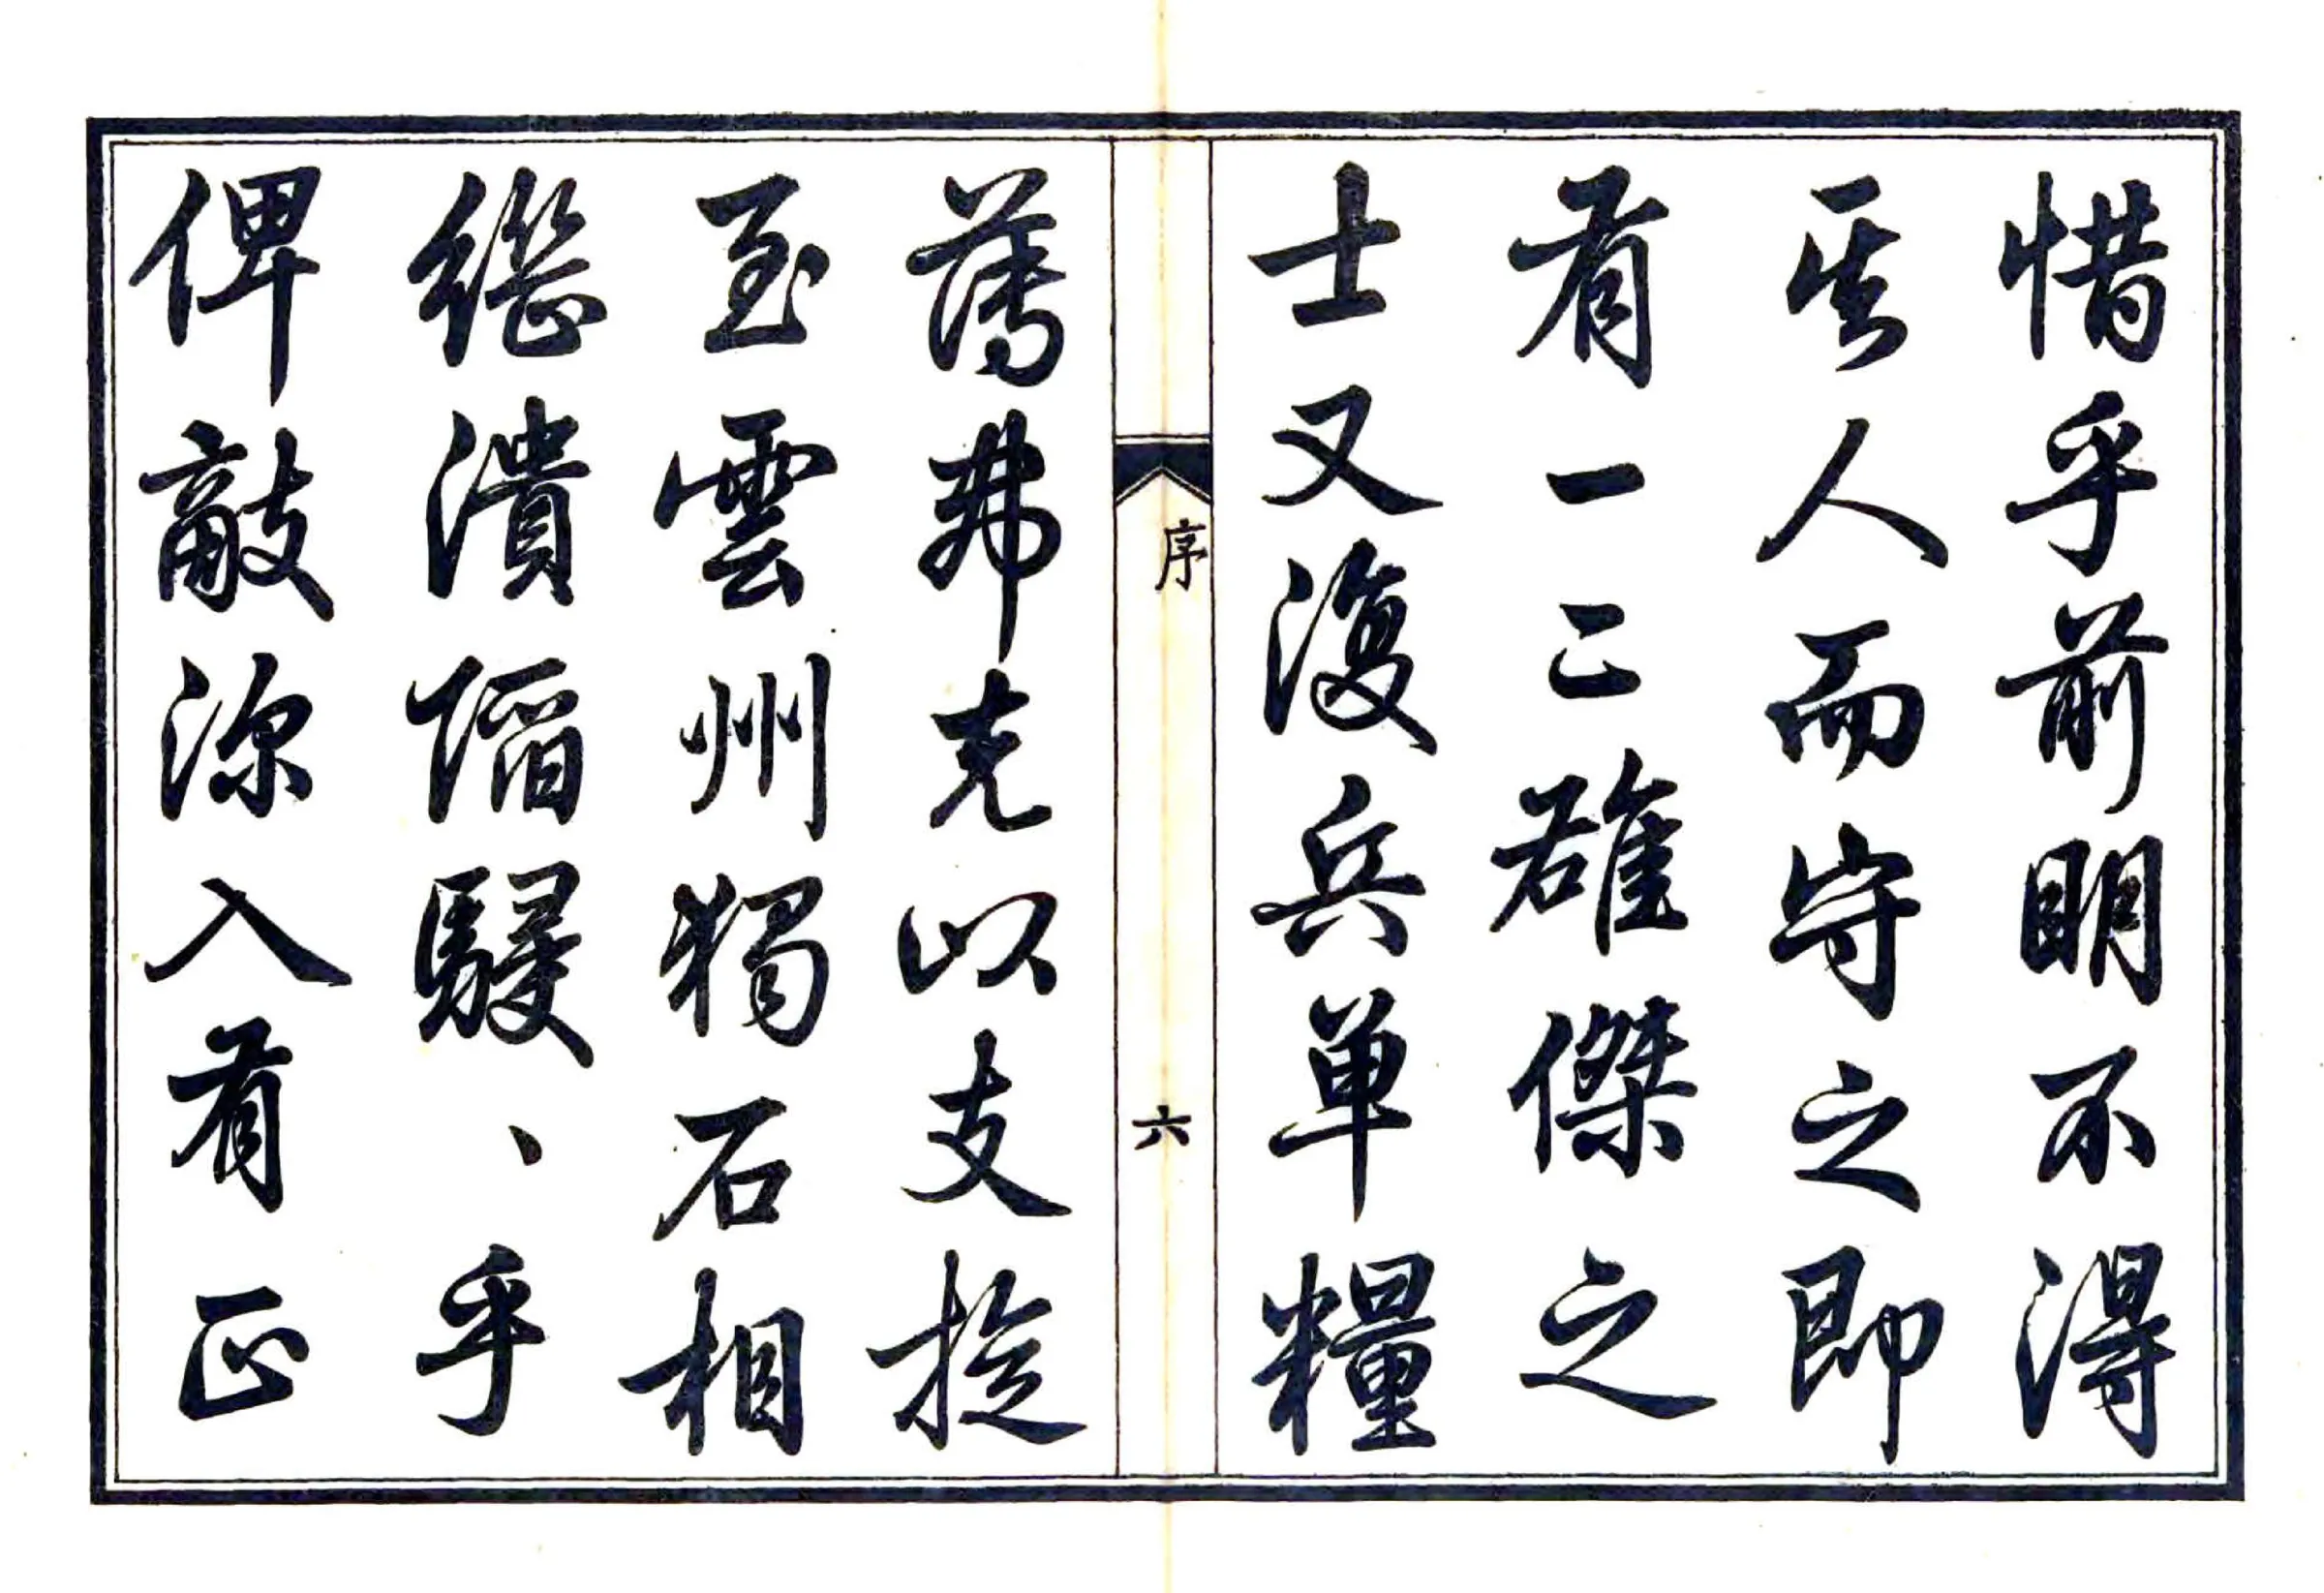 惜乎前明不得
其人而守之即
有一二雄傑之
士又復兵單糧
序
六
薄弗克以支旋
至雲州獨石相
繼潰陷駸、乎
俾敵深入有正